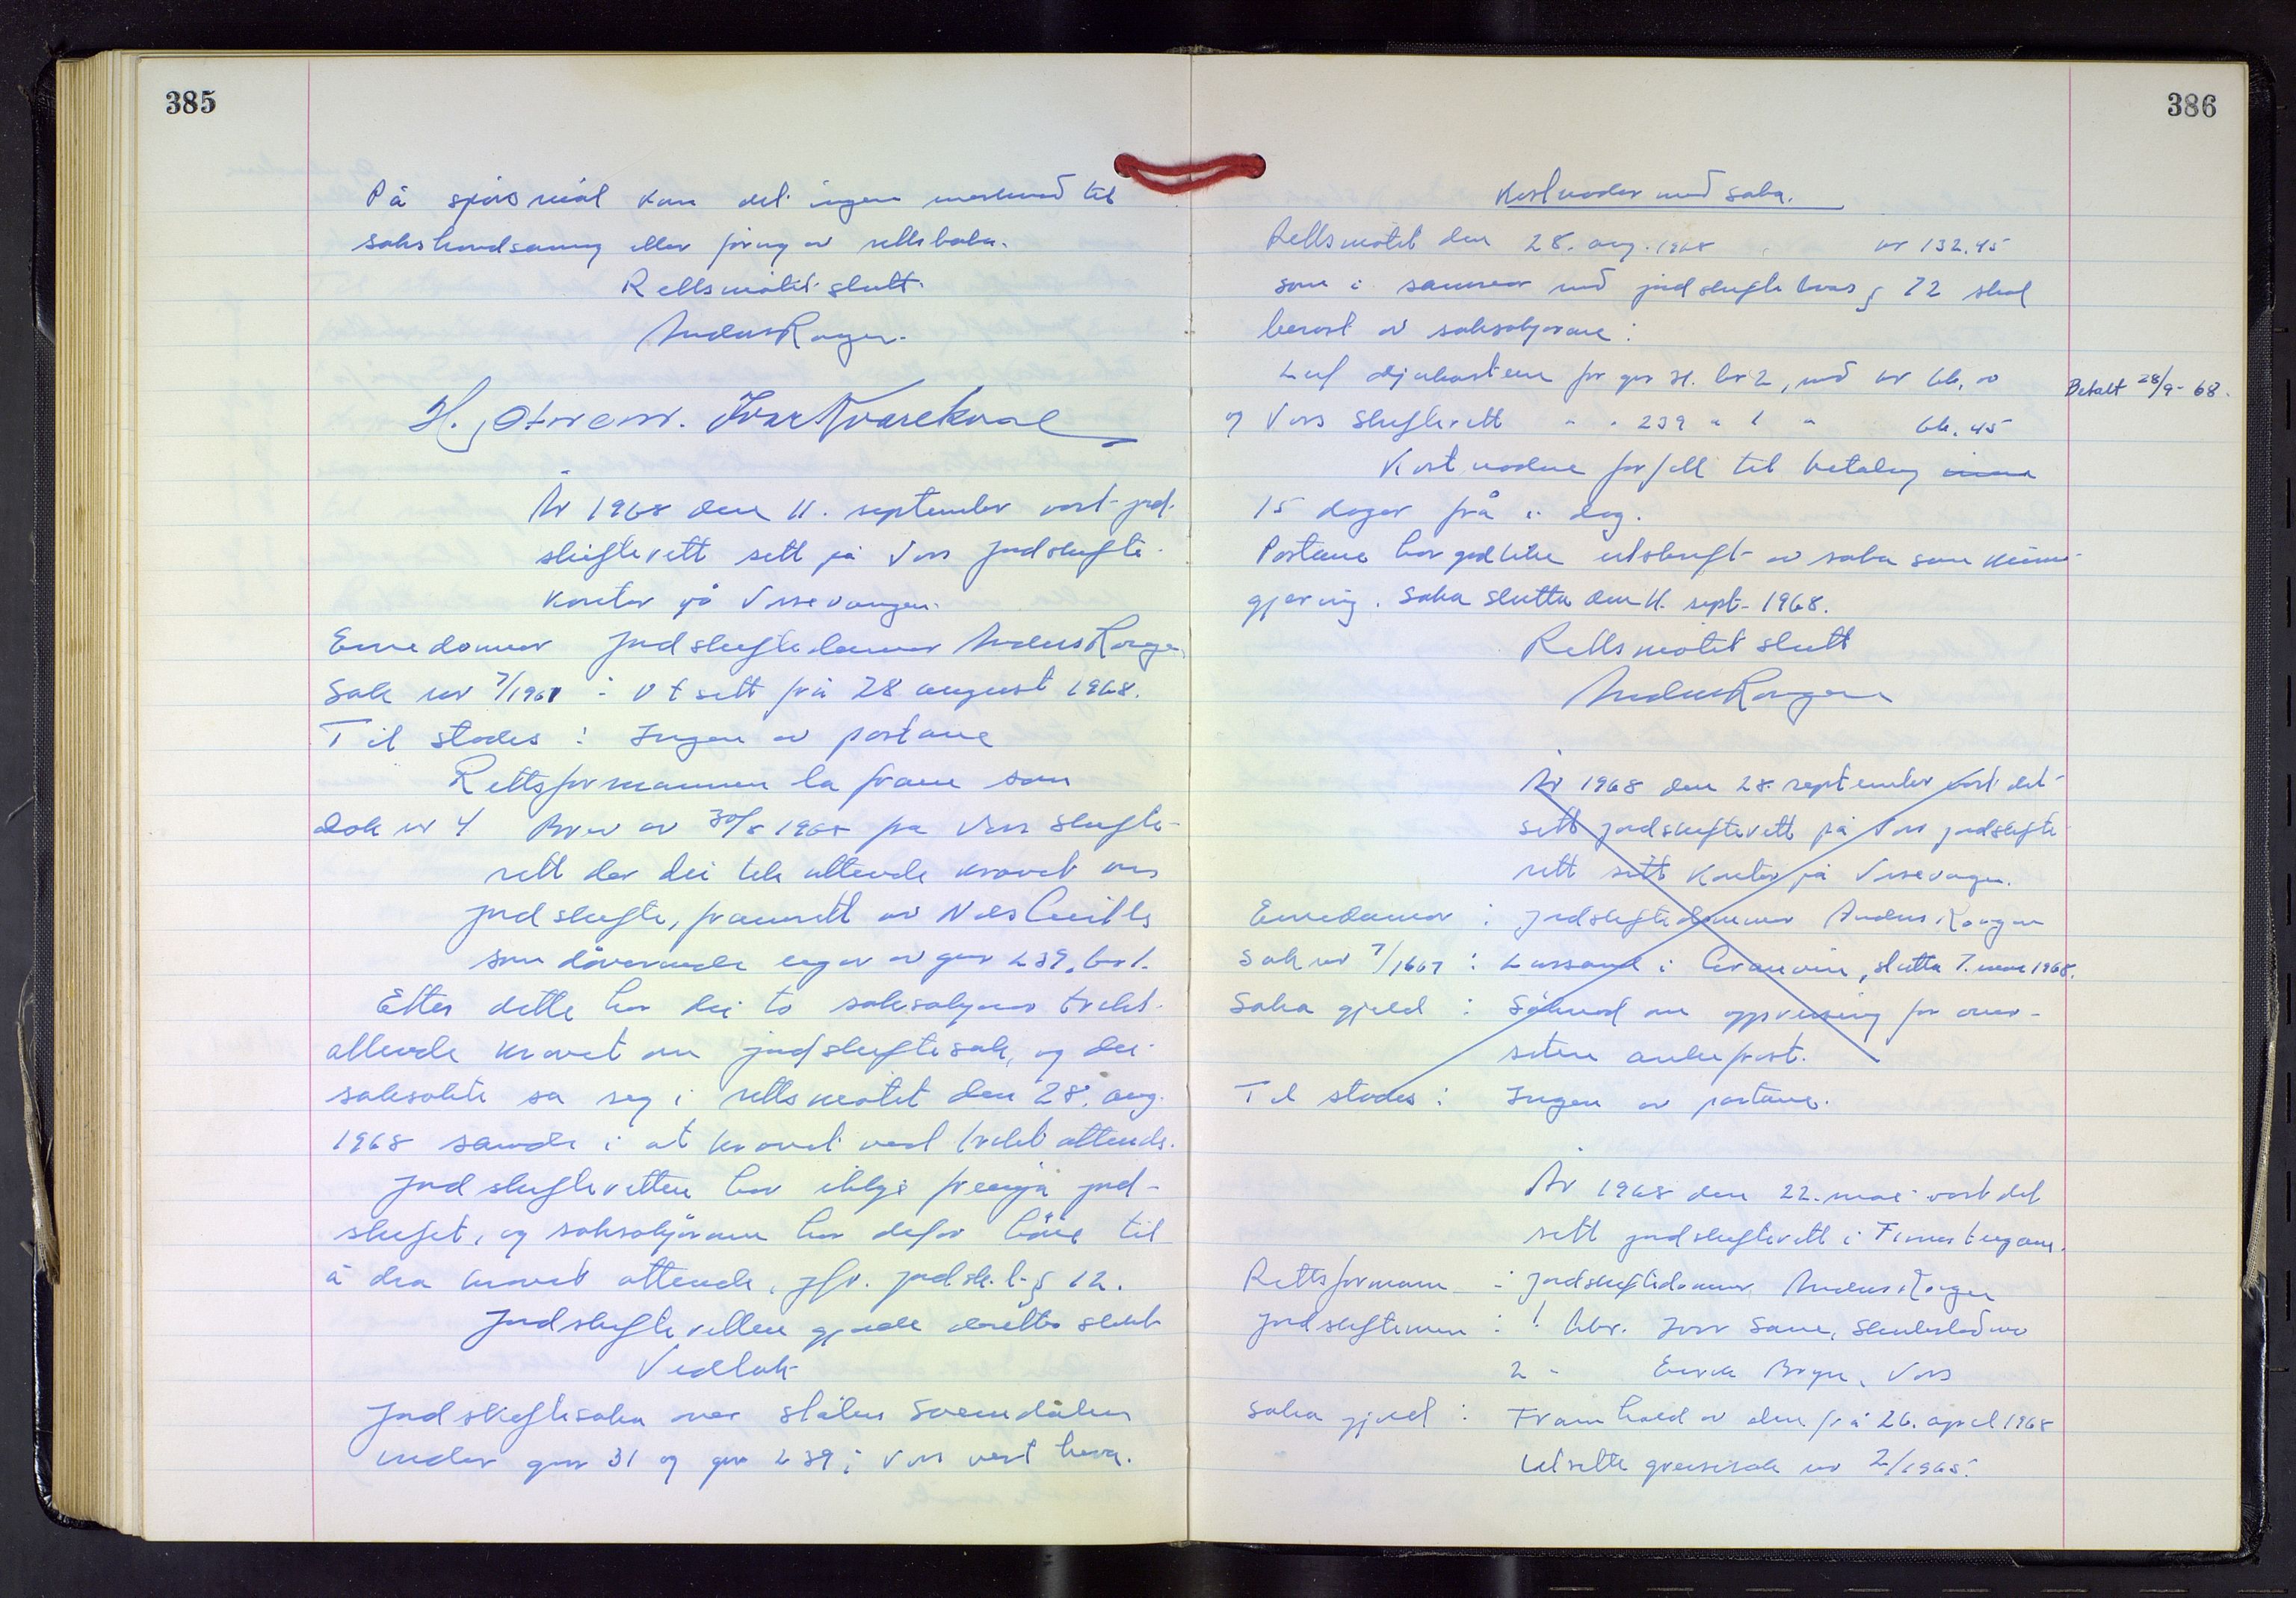 385
På spørsmål kom det ingen merknad til
sakshandsaming eller føring av rettsboka.
Rettsmøtet slutt.
Anders Ronger.
H. Ivar Kvarekval
År 1968 den 11. september vart jord-
skifterett sett på Voss jordskifte-
kontor på Vossevangen.
Einedommar Jordskiftedommar Anders Ronger
Sak nr 7/1967 : Utsett frå 28 august 1968.
Til stades : Ingen av partane
Rettsformannen la fram som
dok nr 4 Brev av 30/8 1968 frå Voss skifte-
rett der dei tek attende kravet om
jordskifte, framsett av Nils
som dåverande eigar av gnr 239, bnr 1.
Etter dette har dei to saksøkjarar trekt
attende kravet om jordskiftesak, og dei
saksøkte sa seg i rettsmøtet den 28. aug.
1968 samde i at kravet vert trekt attende.
Jordskifteretten har ikkje fremja jord-
skiftet, og saksøkjarane har defor høve til
å dra kravet attende, jfr. jordsk.l. § 12.
Jordskifteretten gjorde deretter slikt
Vedtak
Jordskiftesaka over stølen Svemdalen
under gnr 31 og gnr 239 i Voss vert heva.
386
Kostnader med saka.
Rettsmøtet den 28. aug. 1968 kr 132,45
som i samsvar med jordskiftelova § 72 skal
berast av saksøkjarane :
for gnr 31. br 2, med kr 66,00
Betalt 28/9- 68.
og Voss Skifterett " " 239 " 1 " 66,45
Kostnadene forfell til betaling innan
15 dagar frå i dag.
Partane har godteke utskrift av saka som kunn-
gjering. Saka slutta den 11. sept. 1968.
Rettsmøtet slutt
Anders Ronger
År 1968 den 28. september vart det
sett jordskifterett på Voss jordskifte
rett sitt kontor på Vossevangen.
Einedommar : jordskiftedommar Anders Ronger
Sak nr 7/1667 : i Granvin, slutta 7. 1968.
Saka gjeld : Søknad om oppreising for over-
seten ankefrist.
Til stades : Ingen av partane.
År 1968 den 22. mai vart det
sett jordskifterett i
Rettsformann : jordskiftedommar Anders Ronger
Jordskiftemenn : 1 Gbr. Ivar
2 " Eirik Voss
Saka gjeld : Framhald av den frå 26. april 1968
utsette grensesak nr 2/1965.